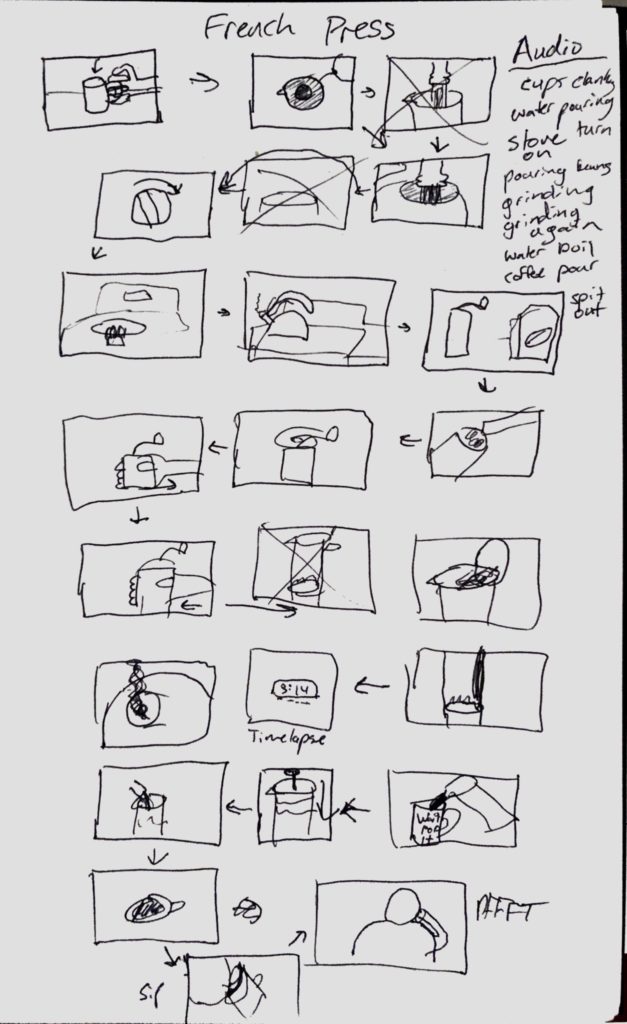 French Press
Audio
cups clanky
water pouring
stove turn
on
pouring beans
grinding
grinding
again
water boil
coffee pour
spit
out
8:14
Timelapse
Wait
for
it
PFFFT
Sip